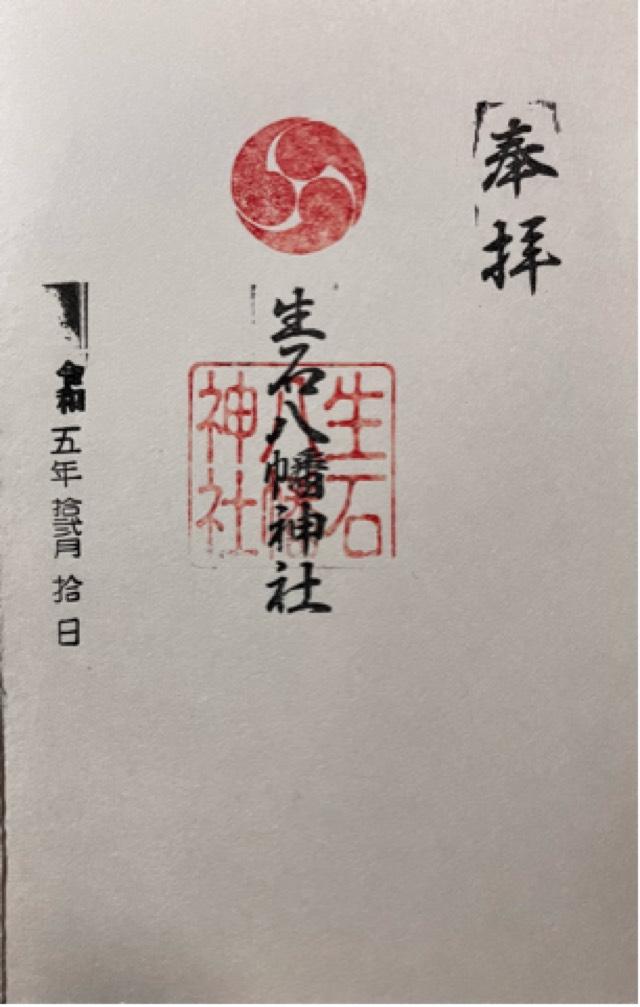 奉拝
生石八幡神社
生石
八幡
神社
令和五年拾弐月拾日